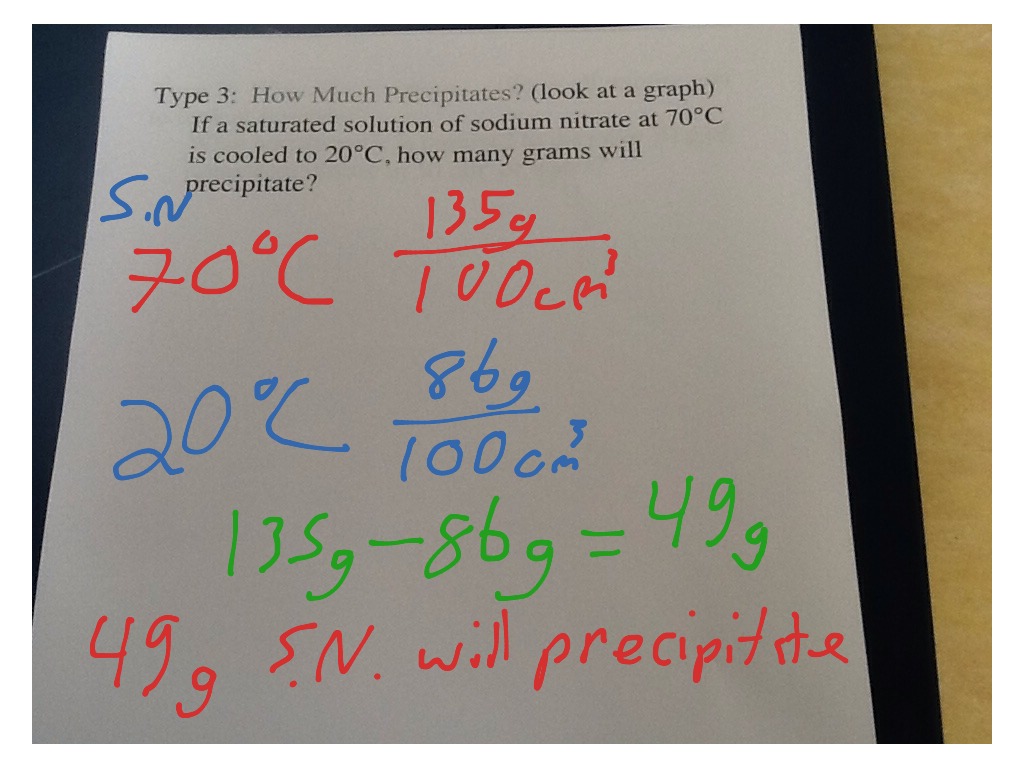 Type 3: How Much Precipitates? (look at a graph)
If a saturated solution of sodium nitrate at 70°C
is cooled to 20°C, how many grams will
precipitate?
S.N
70°C 135g
100cm³
20°C 86g
100cm³
135g - 86g = 49g
49g S.N. will precipitate